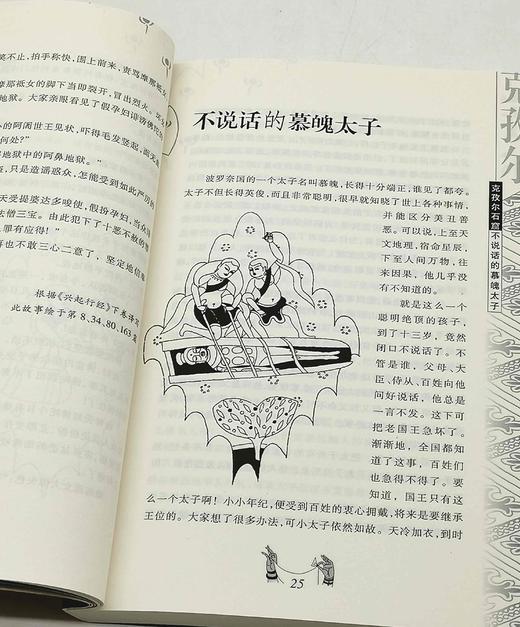 笑不止，拍手称快，围上前来，责骂摩那祗女
摩那祗女的脚下当即裂开，冒出烈火。
地狱。大家亲眼看见了假孕妇诽谤佛陀
的阿阇世王见状，吓得毛发竖起，
何处？”
地狱中的阿鼻地狱。”
，只是造谣惑众，怎能受到如此严厉的
天受提婆达多唆使，假扮孕妇，当众
法僧三宝。由此犯下了十恶不赦的
罪有应得！”
再也不敢三心二意了，坚定地信
根据《兴起行经》下卷译写
此故事绘于第8、34、80、163窟
不说话的慕魄太子
波罗奈国的一个太子名叫慕魄，长得十分端正，谁见了都夸。
太子不但长得英俊，而且非常聪明，很早就知晓了世上各种事情，
并能区分美丑善
恶。可以说，上至天
文地理，宿命星辰，
下至人间万物，往
来因果，他几乎没
有不知道的。
就是这么一个
聪明绝顶的孩子，
到了十三岁，竟然
闭口不说话了。不
管是谁，父母、大
臣、侍从、百姓向他
问好说话，他总是
一言不发。这下可
把老国王急坏了。
渐渐地，全国都知
道了这事，百姓们
也急得不得了。要
知道，国王只有这
么一个太子啊！小小年纪，便受到百姓的衷心拥戴，将来是要继承
王位的。大家想了很多办法，可小太子依然如故。天冷加衣，到时
25
克孜尔
克孜尔石窟
不说话的慕魄太子